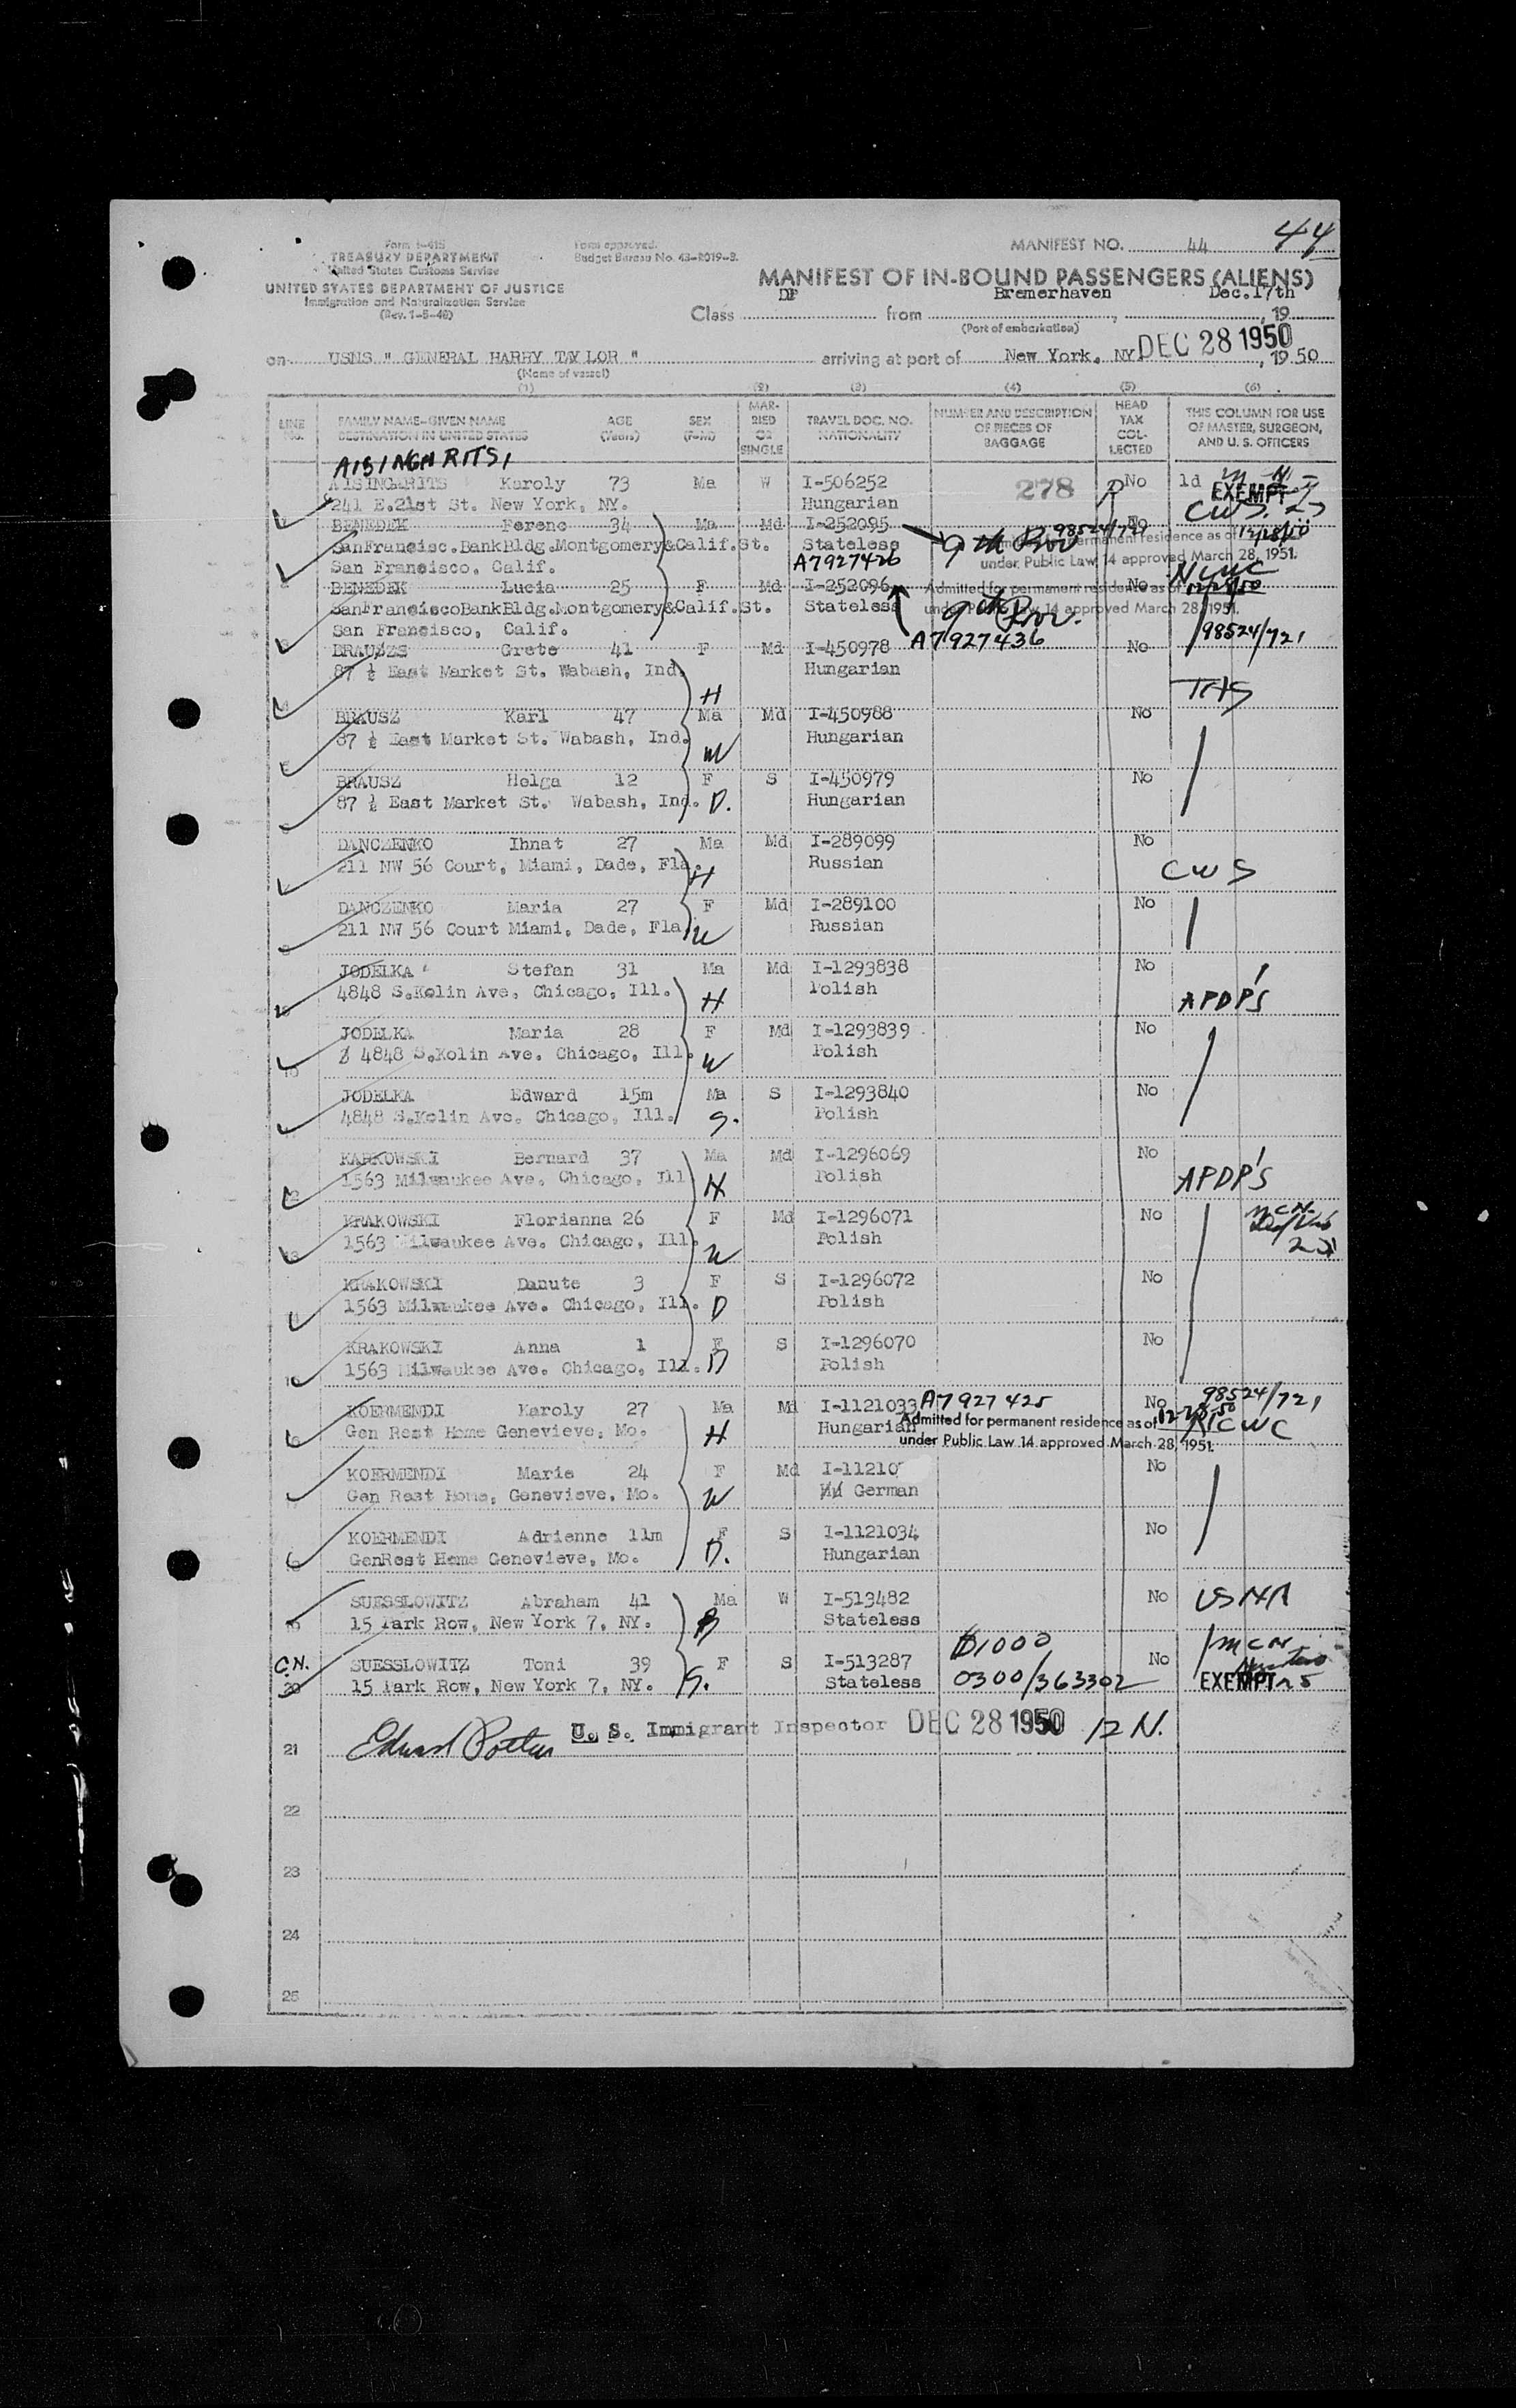 44
Form I-415
TREASURY DEPARTMENT
United States Customs Service
UNITED STATES DEPARTMENT OF JUSTICE
Immigration and Naturalization Service
(Rev. 1-5-49)
Form approved.
Budget Bureau No. 43-R019-3.
MANIFEST NO. 44
MANIFEST OF IN-BOUND PASSENGERS (ALIENS)
Class DP from Bremerhaven, Dec.17th, 19
(Port of embarkation)
DEC 28 1950
on USNS " GENERAL HARRY TAYLOR " arriving at port of New York, NY, 19 50
(Name of vessel)
(1) (2) (3) (4) (5) (6)
LINE No. FAMILY NAME-GIVEN NAME DESTINATION IN UNITED STATES AGE (Years) SEX (F-M) MARRIED OR SINGLE TRAVEL DOC. NO. NATIONALITY NUMBER AND DESCRIPTION OF PIECES OF BAGGAGE HEAD TAX COLLECTED THIS COLUMN FOR USE OF MASTER, SURGEON, AND U. S. OFFICERS
AISINGARITS Karoly 73 Ma W I-506252 278 No ld
241 E.21st St. New York, NY. Hungarian EXEMPT
CWS
BENEDEK Ferenc 34 Ma Md I-252095 No
98524/721
SanFrancisc.BankBldg.Montgomery&Calif.St. Stateless 9th permanent residence as of
San Francisco, Calif. A7927426 under Public Law 14 approved March 28, 1951.
NCWC
BENEDEK Lucia 25 F Md I-252096 Admitted for permanent residence as of No
SanFranciscoBankBldg.Montgomery&Calif.St. Stateless under Public Law 14 approved March 28, 1951.
9th Prov.
San Francisco, Calif. A7927436 98524/721
BRAUSZS Grete 41 F Md I-450978 No
87 ½ East Market St. Wabash, Ind. Hungarian
H
BRAUSZ Karl 47 Ma Md I-450988 No
87 ½ East Market St. Wabash, Ind. W Hungarian
BRAUSZ Helga 12 F S I-450979 No
87 ½ East Market St. Wabash, Ind. D. Hungarian
DANCZENKO Ihnat 27 Ma Md I-289099 No
211 NW 56 Court, Miami, Dade, Fla. H Russian CWS
DANCZENKO Maria 27 F Md I-289100 No
211 NW 56 Court Miami, Dade, Fla W Russian
JODELKA Stefan 31 Ma Md I-1293838 No
4848 S.Kolin Ave. Chicago, Ill. H Polish APDP'S
JODELKA Maria 28 F Md I-1293839 No
4848 S.Kolin Ave. Chicago, Ill. W Polish
JODELKA Edward 15m Ma S I-1293840 No
4848 S.Kolin Ave. Chicago, Ill. S. Polish
KARKOWSKI Bernard 37 Ma Md I-1296069 No
1563 Milwaukee Ave. Chicago, Ill H Polish APDP'S
KRAKOWSKI Florianna 26 F Md I-1296071 No
1563 Milwaukee Ave. Chicago, Ill. W Polish
KRAKOWSKI Danute 3 F S I-1296072 No
1563 Milwaukee Ave. Chicago, Ill. D Polish
KRAKOWSKI Anna 1 F S I-1296070 No
1563 Milwaukee Ave. Chicago, Ill. D Polish
KOERMENDI Karoly 27 Ma Md I-1121033 A7927425 No 98524/721
Gen Rest Home Genevieve, Mo. H Hungarian Admitted for permanent residence as of 12-28-50
under Public Law 14 approved March 28, 1951.
KOERMENDI Marie 24 F Md I-11210 No
Gen Rest Home, Genevieve, Mo. W German
KOERMENDI Adrienne 11m F S I-1121034 No
GenRest Home Genevieve, Mo. D. Hungarian
SUESSLOWITZ Abraham 41 Ma W I-513482 No USNA
15 Park Row, New York 7, NY. B Stateless
C.N. SUESSLOWITZ Toni 39 F S I-513287 D1000 No
20 15 Park Row, New York 7, NY. S. Stateless 0300/363302 EXEMPT
U. S. Immigrant Inspector DEC 28 1950 12 N.
21
22
23
24
25